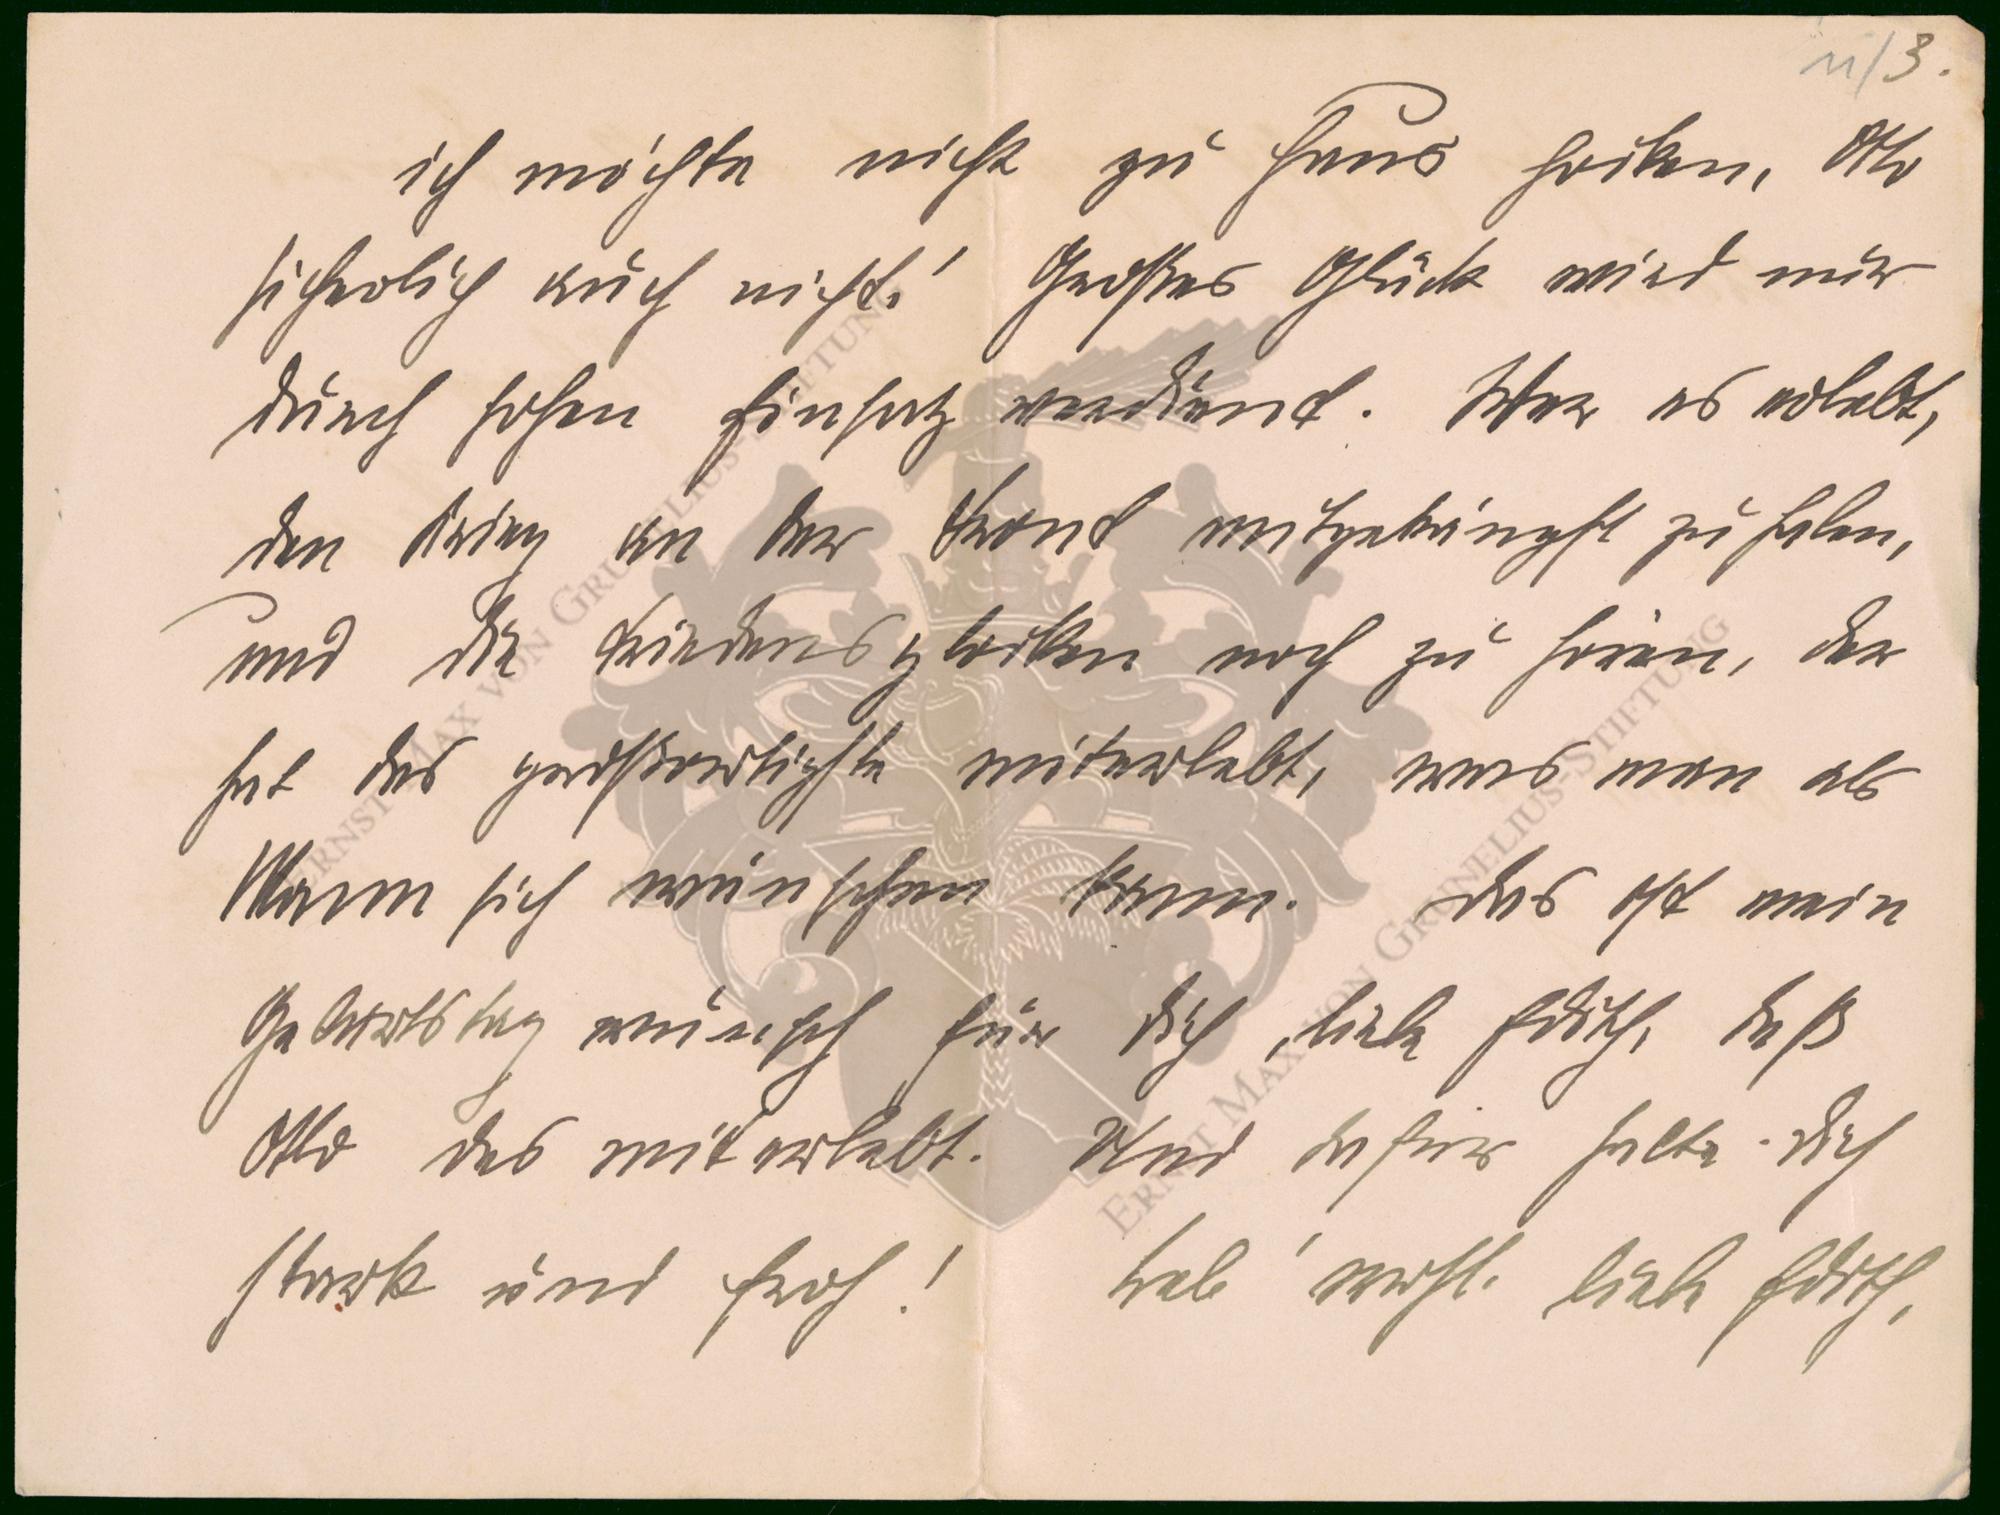 11/3.
ich möchte nicht zu Haus hocken, Otto
sicherlich auch nicht! Großes Glück wird nur
durch hohen Einsatz verdient. Wer es erlebt,
den Krieg an der Front mitgekämpft zu haben,
und die Friedensglocken noch zu hören, der
hat das großartigste miterlebt, was man als
Mann sich wünschen kann. Das ist mein
Geburtstagwunsch für dich, liebe Edith, daß
Otto das miterlebt. Und dafür halte dich
stark und froh! Leb' wohl. liebe Edith,
ERNST MAX VON GRUNELIUS-STIFTUNG
ERNST MAX VON GRUNELIUS-STIFTUNG